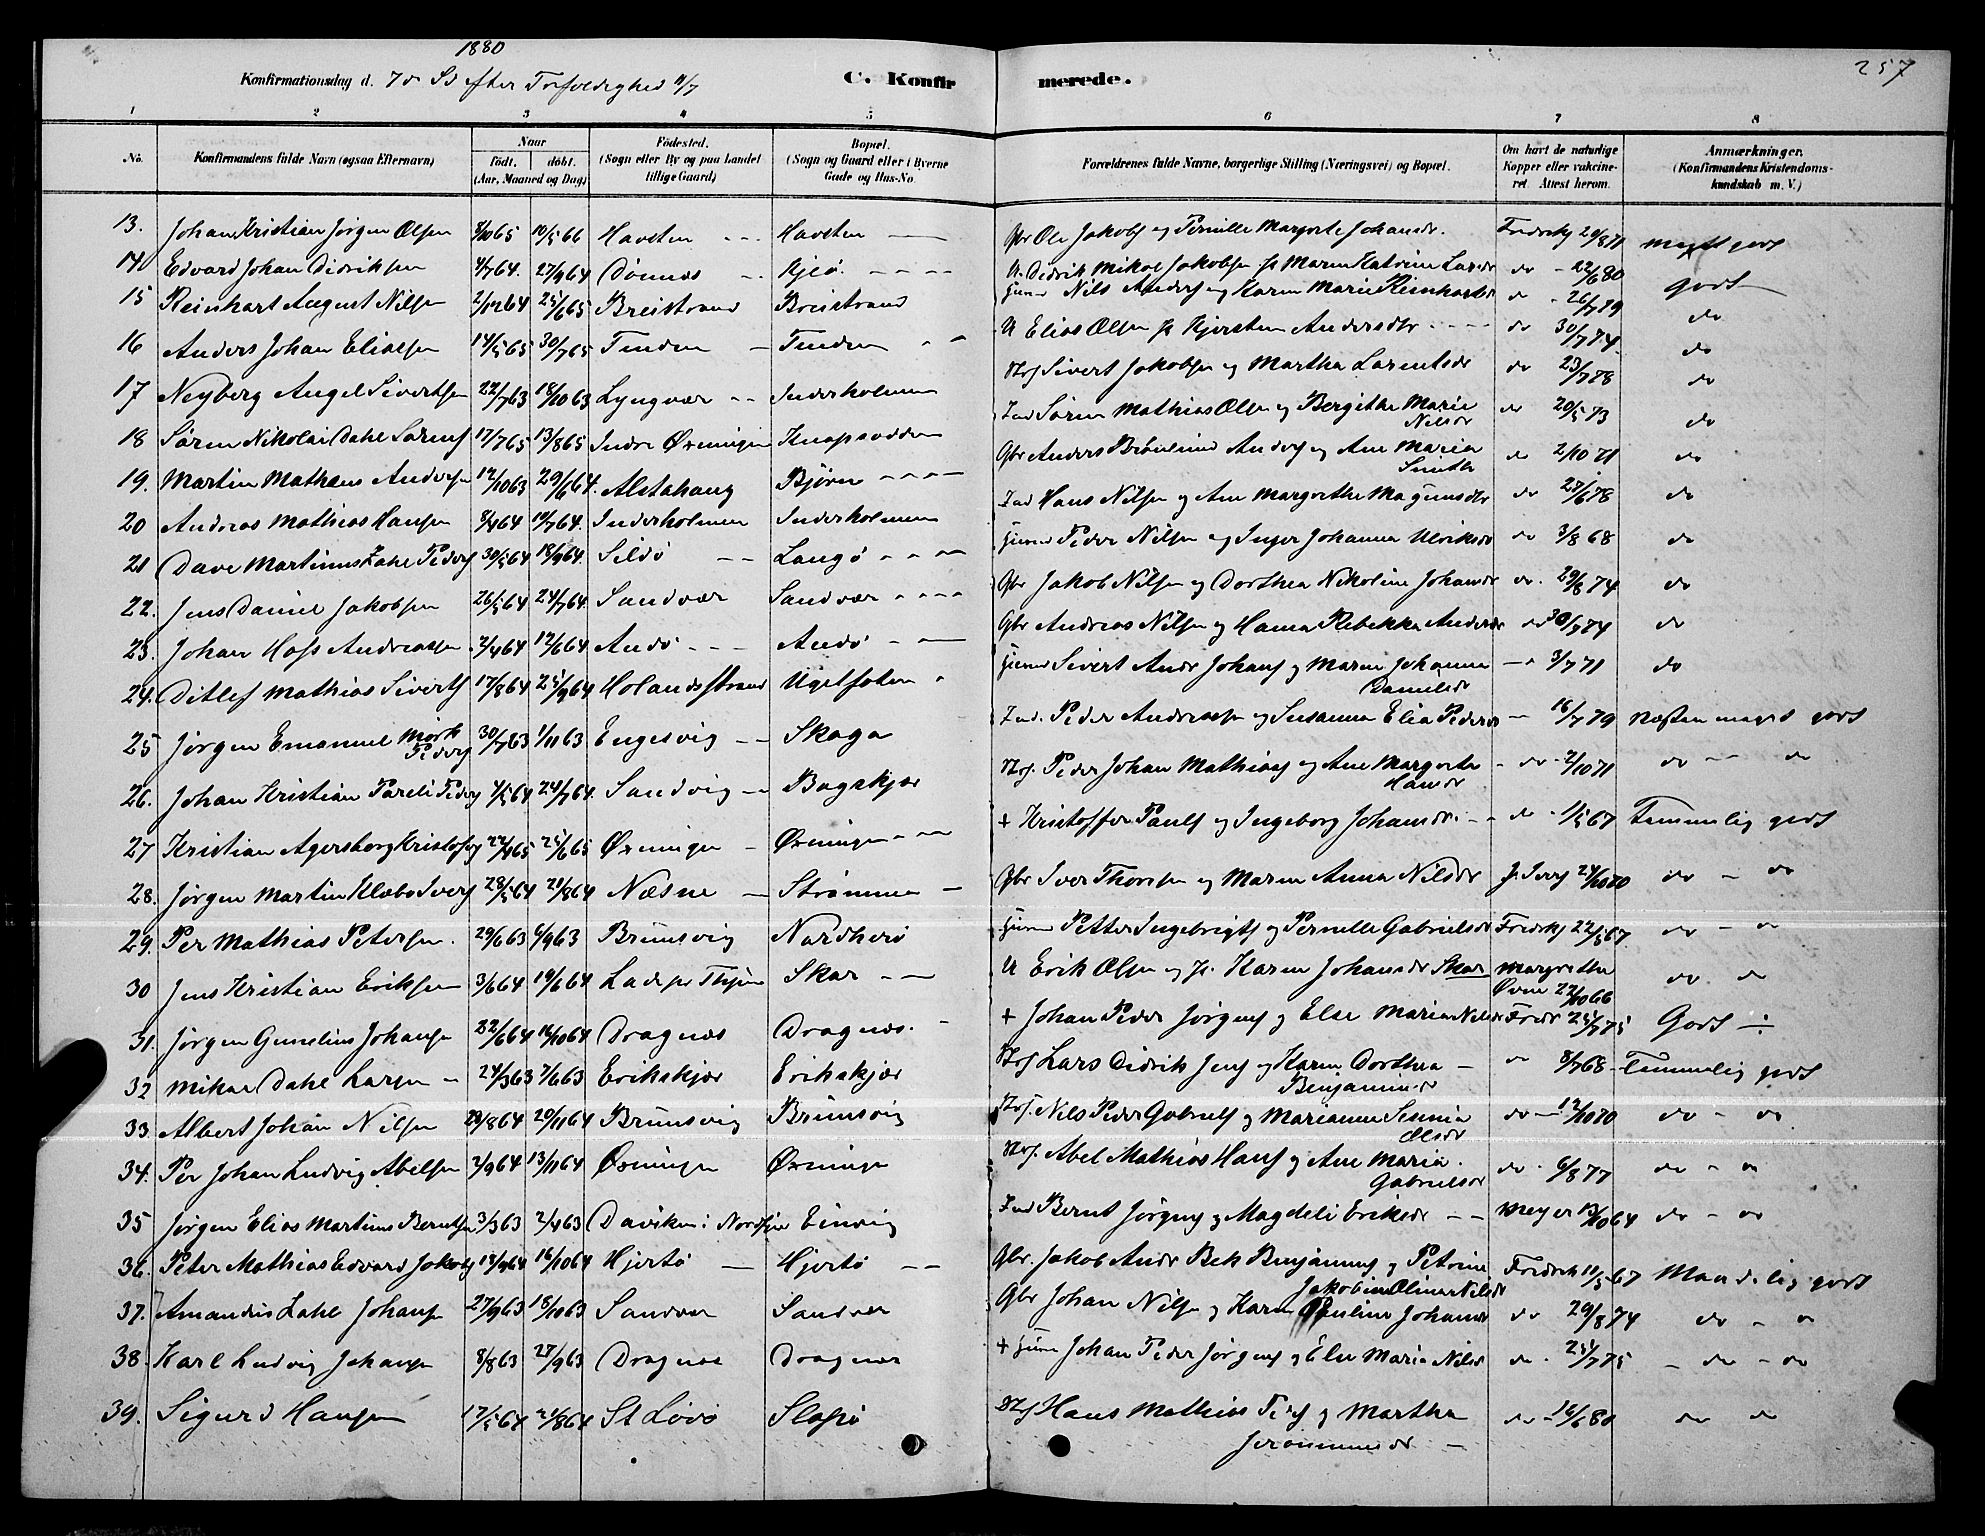 1880
257
Konfirmationsdag d. 7de Sd efter Trefoldighed 11/7
C. Konfirmerede.
1 2 3 4 5 6 7 8
No. Konfirmandens fulde Navn (ogsaa Efternavn) Naar födt. döbt. (Aar, Maaned og Dag) Födested. (Sogn eller By og paa Landet tillige Gaard) Bopæl. (Sogn og Gaard eller i Byerne Gade og Hus-No. Forældrenes fulde Navne, borgerlige Stilling (Næringsvei) og Bopæl. Om havt de naturlige Kopper eller vakcineret. Attest herom. Anmærkninger. (Konfirmandens Kristendomskundskab m. V.)
13. Johan Kristian Jørgen Olsen 8/10 65 10/5 66 Havsten Havsten Gbr Ole Jakobs og Pernille Margrete Johansdr. Fredrks 29/8 71 meget godt
14 Edvard Johan Didriksen 4/7 64. 27/9 64 Dønnes Kjeø. U. Didrik Mikal Jakobsen p. Maren Katrine Larsdr do - 22/6 80 godt
15 Reinhart August Nilsen 2/12 64 25/6 65 Breistrand Breistrand Nils Anders og Karen Marie Reinhartsdr do - 26/7 79 do
16 Anders Johan Eliassen 14/5 65 30/7 65 Tenden Tenden U Elias Olsen p. Kjersten Andersdtr do 30/7 74. do
17 Neyberg Angel Sivertsen 22/7 63 18/10 63 Lyngvær Inderholmen Sivert Jakobsen og Martha Larentsdr do 23/7 78 do
18 Søren Nikolai Dahl Sørens 17/7 65 13/8 65 Indre Øxningen Søren Mathias Olsen og Bergitha Marie Nilsdr do 20/5 73 do
19. Martin Mathæus Andersen 12/10 63 29/6 64. Alstahaug Bjørn Gbr Anders Anders og Ane Maria do 2/10 71 do
20 Andreas Mathias Hansen 8/4 64 10/7 64. Inderholmen Inderholmen Ind Hans Nilsen og Ane Margrethe Magnusdtr do 27/6 78 do
21 Dave Martinus Zahl Peders 30/5 64 18/9 64. Sildø Langø Peder Nilsen og Inger Johanna Ulriksdr do 3/8 68 do
22. Jens Daniel Jakobsen 26/5 64 24/7 64. Sandvær Sandvær Gbr Jakob Nilsen og Dorthea Nikoline Johansdr do. 29/8 74 do
23. Johan Hass Andreassen 2/4 64 12/6 64 Andø Andø Gbr Andreas Nilsen og Hanna Rebekka Andersdr do 30/7 74 do
24. Ditlef Mathias Siverts 17/8 64 25/9 64 Holandsstrand Sivert Andr Johans og Maren Johanna Danielsdr - 3/7 71 do
25 Jørgen Emanuel Mørk Peders 30/7 63 1/11 63 Engesvig Skaga Ind. Peder Andreassen og Susanna Elia Pedersdr - 16/7 79 Næsten meget godt
26. Johan Kristian Pareli Peders 1/5 64 24/7 64. Sandvig Bagskjær Peder Johan Mathias og Ane Margrete Hansdr - do - 2/10 71 do - - do
27 Kristian Agersborg Kristofers 22/4 65 25/6 65 Øxningen Øxningen + Kristoffer Pauls og Ingeborg Johansdr. do - 1/5 67 Temmelig godt
28. Jørgen Martin Klæbo Ivers 28/5 64 21/8 64 Næsne Strømmen Gbr Iver Thorsen og Maren Anna Nilsdr 24/10 70 do - do
29. Per Mathias Petersen. 29/6 63 6/9 63 Brunsvig Nordherø Petter Ingebrigts og Pernille Gabrielsdr Fredrks 22/5 67. do - do
30 Jens Kristian Eriksen 3/6 64 19/6 64 Skar U Erik Olsen og p. Karen Johansdr Skar Margrethe 22/10 66 do do
31. Jørgen Gunelius Johansen 22/6 64 16/10 64 Dragnes Dragnes. + Johan Peder Jørgens og Else Maria Nilsdr Fredr 25/7 75 Godt ÷
32 Mikal Dahl Larsen 24/3 63 7/6 63 Erikskjær Erikskjær Lars Didrik Jens og Karen Dorthea Benjaminsdr do 8/7 68 Temmelig godt
33. Albert Johan Nilsen 29/8 64 20/11 64 Brunsvig Brunsvig Nils Peder Gabriels og Marianna Olsdr do - 12/10 70 do - do
34. Per Johan Ludvig Abelsen 2/9 64 13/11 64 Øxningen Øxningen Abel Mathias Hans og Ane Maria Gabrielsdr do. 6/8 77 do - do
35 Jørgen Elias Martinus Berntsen 3/3 63 2/4 63 Daviken i Nordfjor Einvig Ind Bernt Jørgens og Magdeli Eriksdr Meyer 13/10 64 do - do
36. Peter Mathias Edvard Jakobs 14/9 64 16/10 64 Hjertø Hjertø Gbr. Jakob Andr Bek Benjamins og Petrine Jakobine Oline Nilsdr Fredrk 11/5 67 Maadelig godt
37. Amandus Zahl Johansen 27/9 63 18/10 63 Sandvær Sandvær Gbr Johan Nilsen og Karen Pauline Johansdr do 29/8 74 do - do
38. Karl Ludvig Johansen 8/8 63 27/9 63 Dragnes Dragnes + Johan Peder Jørgens og Else Maria Nilsdr do. 25/7 75 - do - do
39. Sigurd Hansen 17/5 64 21/8 64 St Løvø Slapø Hans Mathias Peders og Martha Jeronimusdr do - 16/6 80 do do